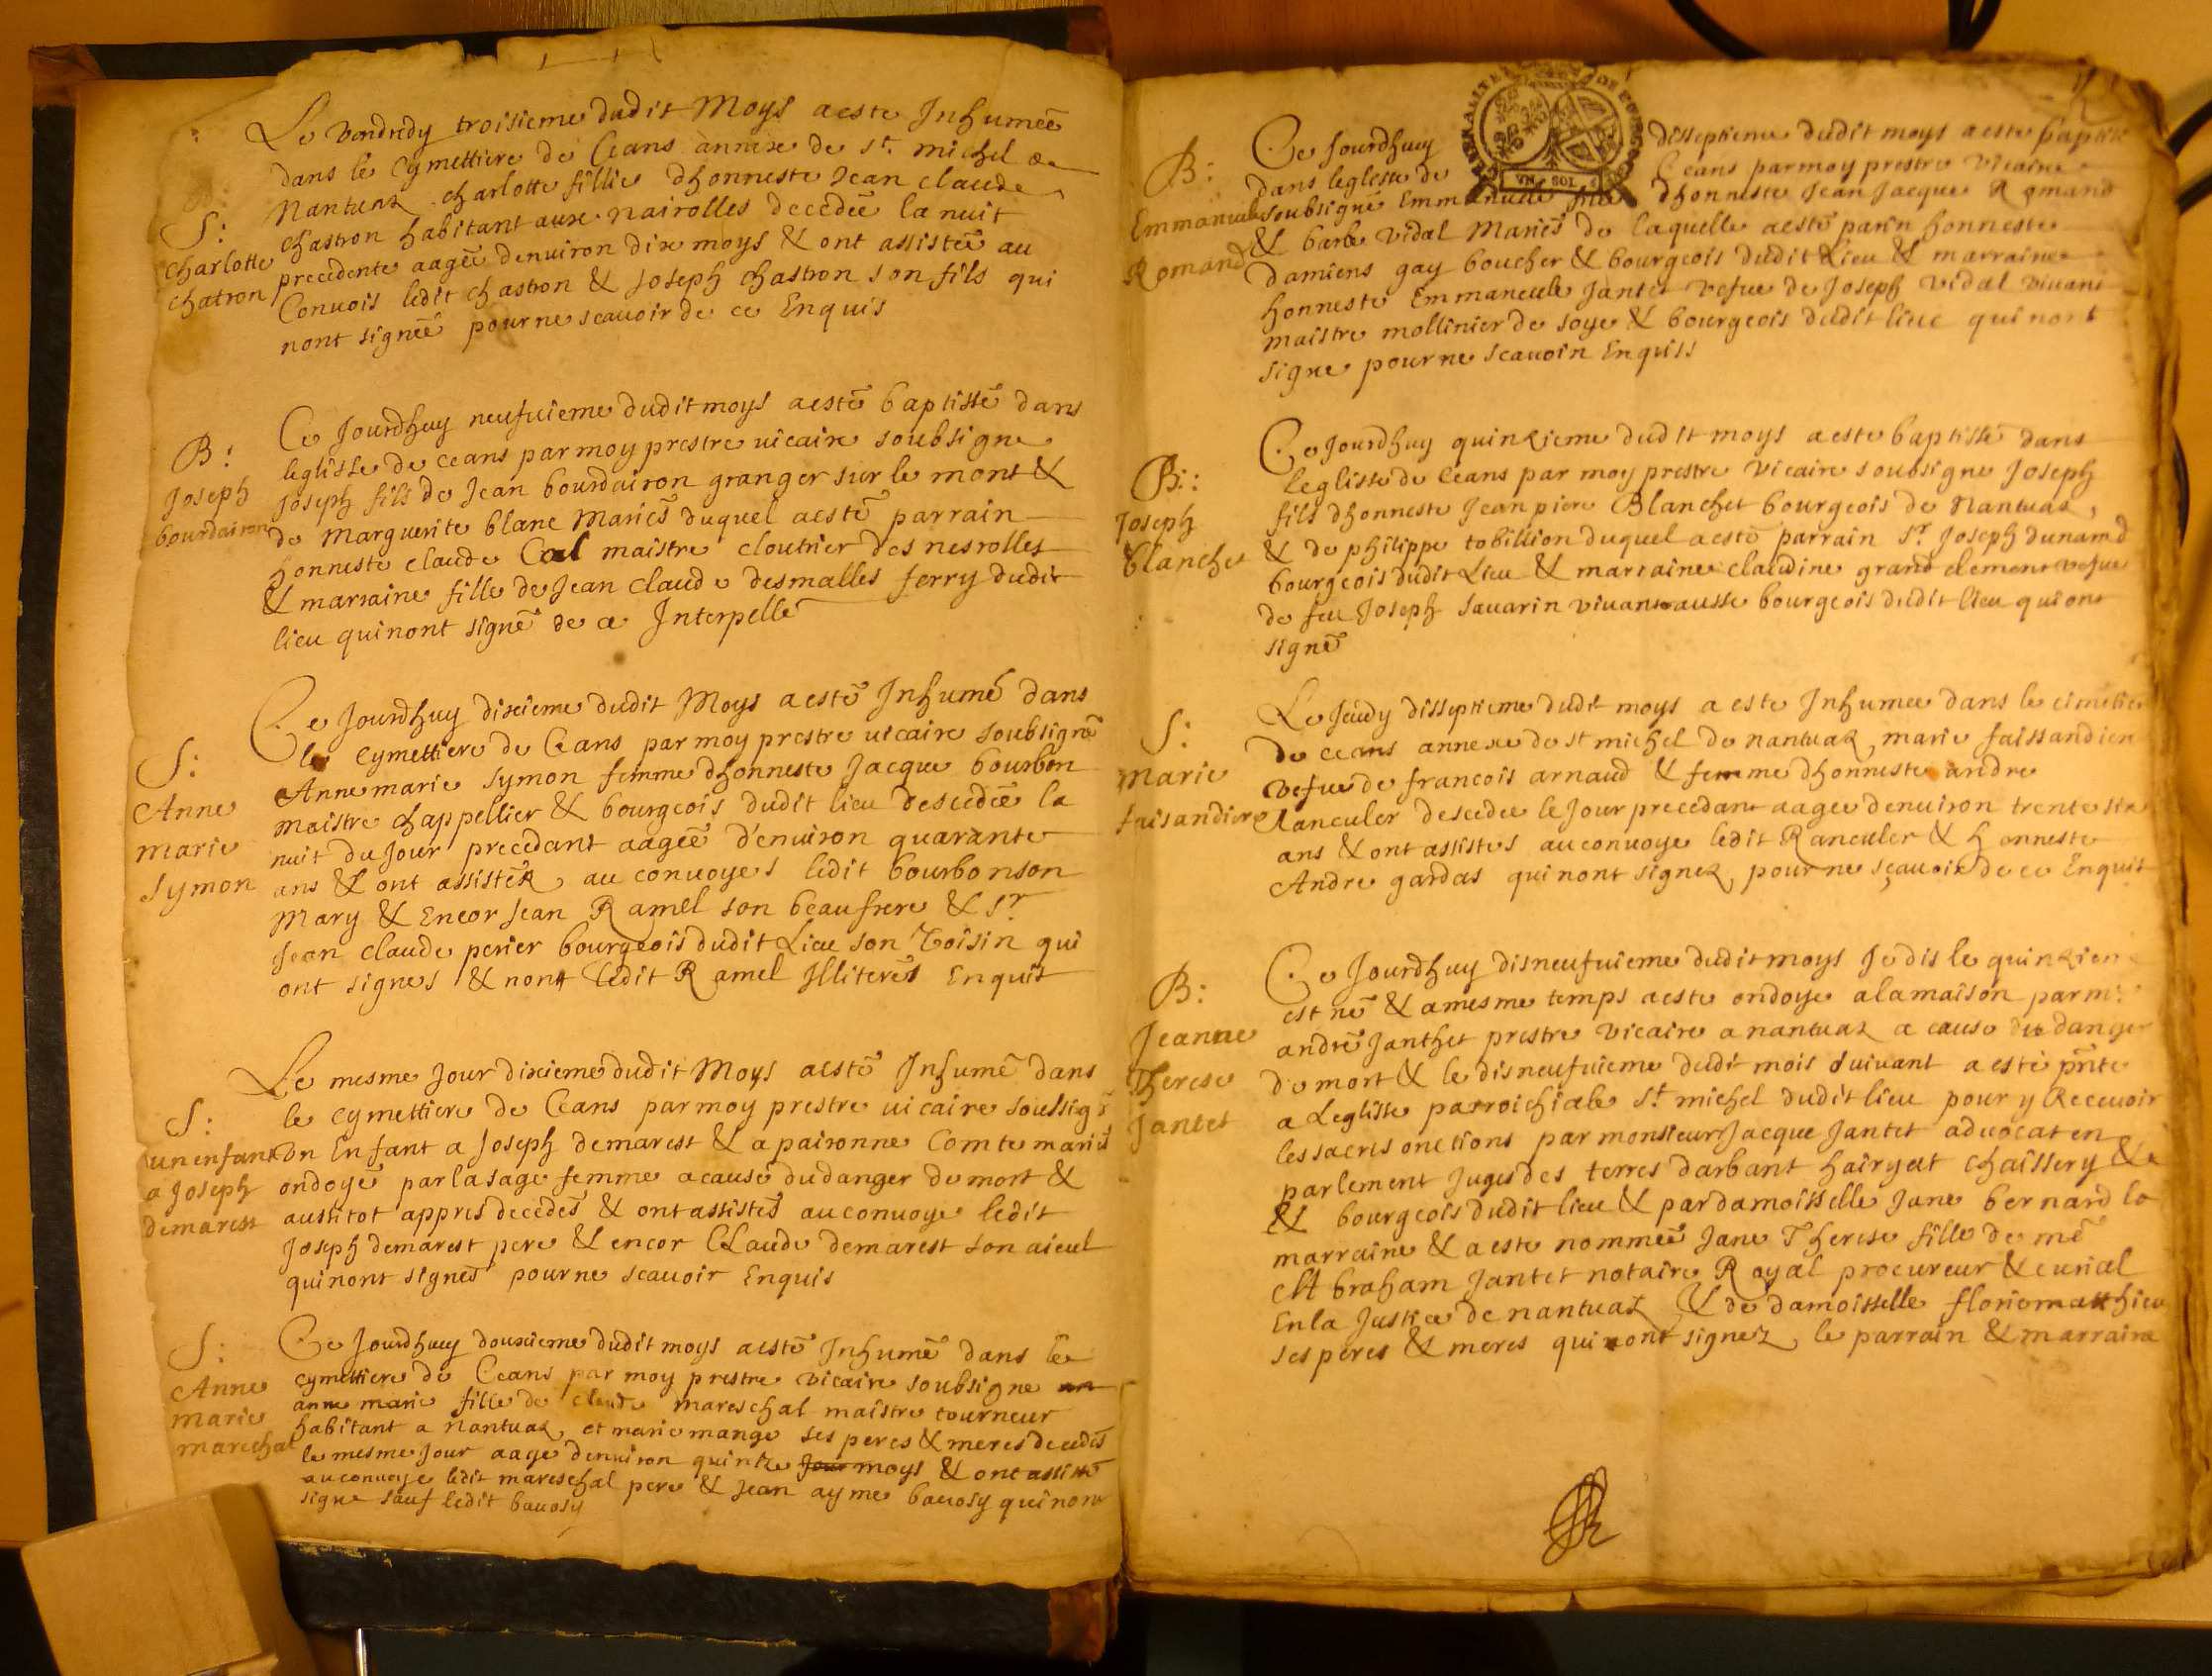 Le vendredy troisieme dudit Moys a este Inhumeé
dans le Cymettiere de Ceans annexe de St. michel de
Nantuaz charlotte fillie dhonneste Jean claude
S:
Charlotte
chatron
chastron habitant aux nairolles decedeé la nuit
precedente aageé denuiron dix moys & ont assisteé au
Conuois ledit chastron & Joseph chastron son fils qui
nont signeé pour ne scauoir de ce Enquis
B:
Joseph
bourdairon
Ce Jourdhuy neufuieme dudit moys a esté baptissé dans
leglisse de ceans par moy prestre uicaire soubsigne
Joseph fils de Jean bourdairon granger sur le mont &
de Marguerite blanc Mariés duquel a esté parrain
honneste claude Cal maistre cloutrier des nesrolles
& marraine fille de Jean claude desmalles ferry dudit
lieu qui nont signé de ce Interpellé
S:
Anne
marie
Symon
Ce Jourdhuy dixieme dudit Moys a esté Inhumé dans
le Cymettiere de Ceans par moy prestre uicaire soubsigné
Anne marie Symon femme dhonneste Jacque bourbon
maistre chappellier & bourgeois dudit lieu descedeé la
nuit du Jour precedant aageé d'enuiron quarante
ans & ont assistéz au conuoyes ledit bourbon son
Mary & Encor Jean Ramel son beaufrere & Sr
Jean claude perier bourgeois dudit Lieu son Voisin qui
ont signes & nont ledit Ramel Illiterés Enquit
S:
un enfant
a Joseph
demarest
Le mesme Jour dixieme dudit Moys a esté Inhumé dans
le Cymettiere de Ceans par moy prestre uicaire soussigé
Un Enfant a Joseph demarest & a paironne Comte mariés
ondoyé par la sage femme a cause du danger de mort &
aussitot appres decedés & ont assistés au conuoye ledit
Joseph demarest pere & encor Claude demarest son aieul
qui nont signes pour ne scauoir Enquis
S:
Anne
marie
marechal
Ce Jourdhuy douxieme dudit moys a esté Inhumé dans le
cymettiere de Ceans par moy prestre vicaire soubsigne
anne marie fille de claude mareschal maistre tourneur
habitant a Nantuaz et marie mange ses peres & meres decedés
le mesme Jour aage denuiron quinze Jour moys & ont assisté
au conuoye ledit mareschal pere & Jean ayme bauosy qui nont
signe sauf ledit bauosy
B:
Emmanuele
Romand
GENERALITE DE BOURGOGNE
UN SOL
Ce Jourdhuy disseptieme dudit moys a este baptisé
dans leglesse de Ceans par moy prestre vicaire
soubsigné Emmanuele fille dhonneste Jean Jacque Romand
& barbe vidal Mariés de laquelle a esté parin honneste
damiens gay boucher & bourgeois dudit Lieu & marraine
honneste Emmaneuele Jantet vefue de Joseph vidal viuant
maistre mollinier de soye & bourgeois dudit lieu qui nont
signe pour ne scauoir Enquiss
B:
Joseph
blanchet
Ce Jourdhuy quinzieme dudit moys a este baptissé dans
leglisse de ceans par moy prestre vicaire soubsigne Joseph
fils dhonneste Jean piere Blanchet bourgeois de Nantuaz,
& de philippe tobillion duquel a esté parrain Sr. Joseph dunamd
bourgeois dudit Lieu & marraine claudine grand clement vefue
de feu Joseph Sauarin viuant ausse bourgeois dudit lieu qui ont
signé
S:
marie
faisandiere
Le Jeudy disseptieme dudit moys a este Inhumee dans le cimetier
de ceans annexe de st michel de nantuaz, marie faissandier
vefue de francois arnaud & femme dhonneste andre
Ranculer descedee le Jour precedant aagee denuiron trente six
ans & ont assistes au conuoye ledit Ranculer & honneste
Andre gardas qui nont signez, pour ne sçauoir de ce Enquit
B:
Jeanne
Therese
Jantet
Ce Jourdhuy disneufuieme dudit moys Je dis le quinzien
est né & a mesme temps a este ondoye a la maison par mr
andré Janthet prestre vicaire a nantuaz a cause du danger
de mort & le disneufuieme dudit mois suivant a esté pñte
a Leglisse parroichiale St. michel dudit lieu pour y Receuoir
les sacres onctions par monsieur Jacque Jantet aduocat en
parlement Juges des terres darbant hairyat chaissery &
& bourgeois dudit lieu & par damoisselle Jane bernard la
marraine & a este nommeé Jane Therese fille de mé
Abraham Jantet notaire Royal procureur & curial
En la Justice de nantuaz & de damoisselle florie matthieu
ses peres & meres qui ont signez, le parrain & marraine